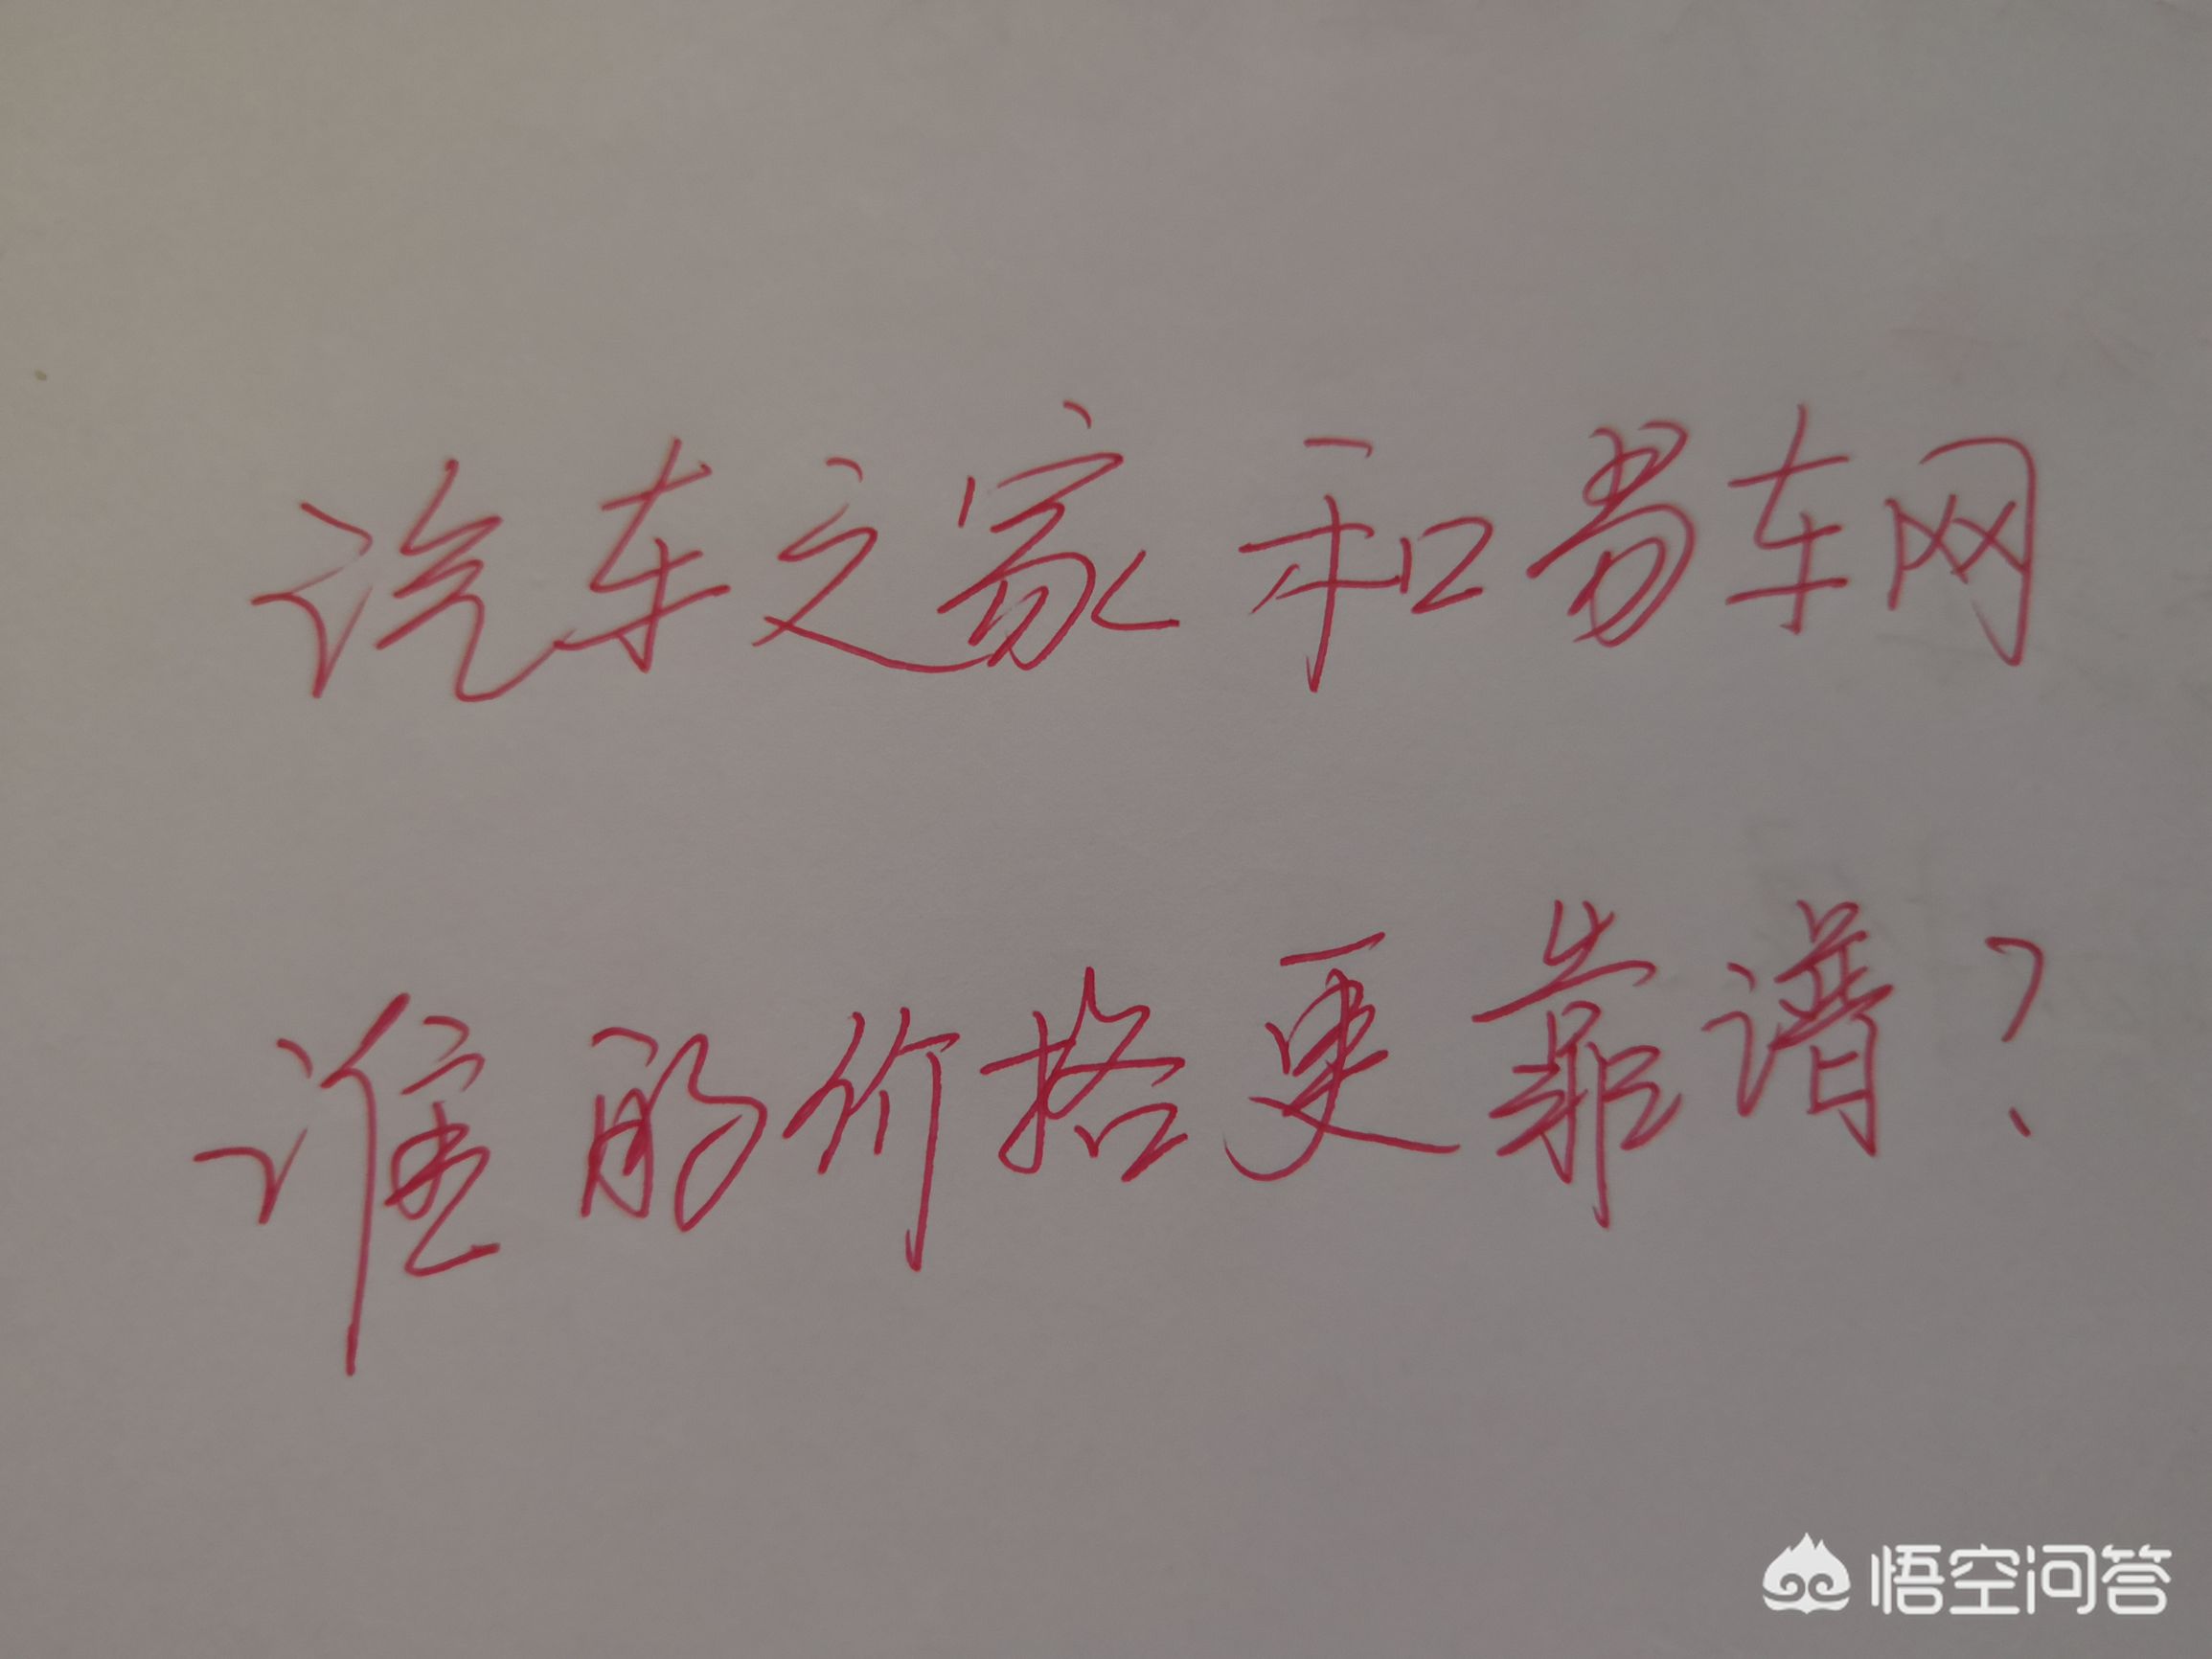 汽车之家和易车网
谁的价格更靠谱?
悟空问答